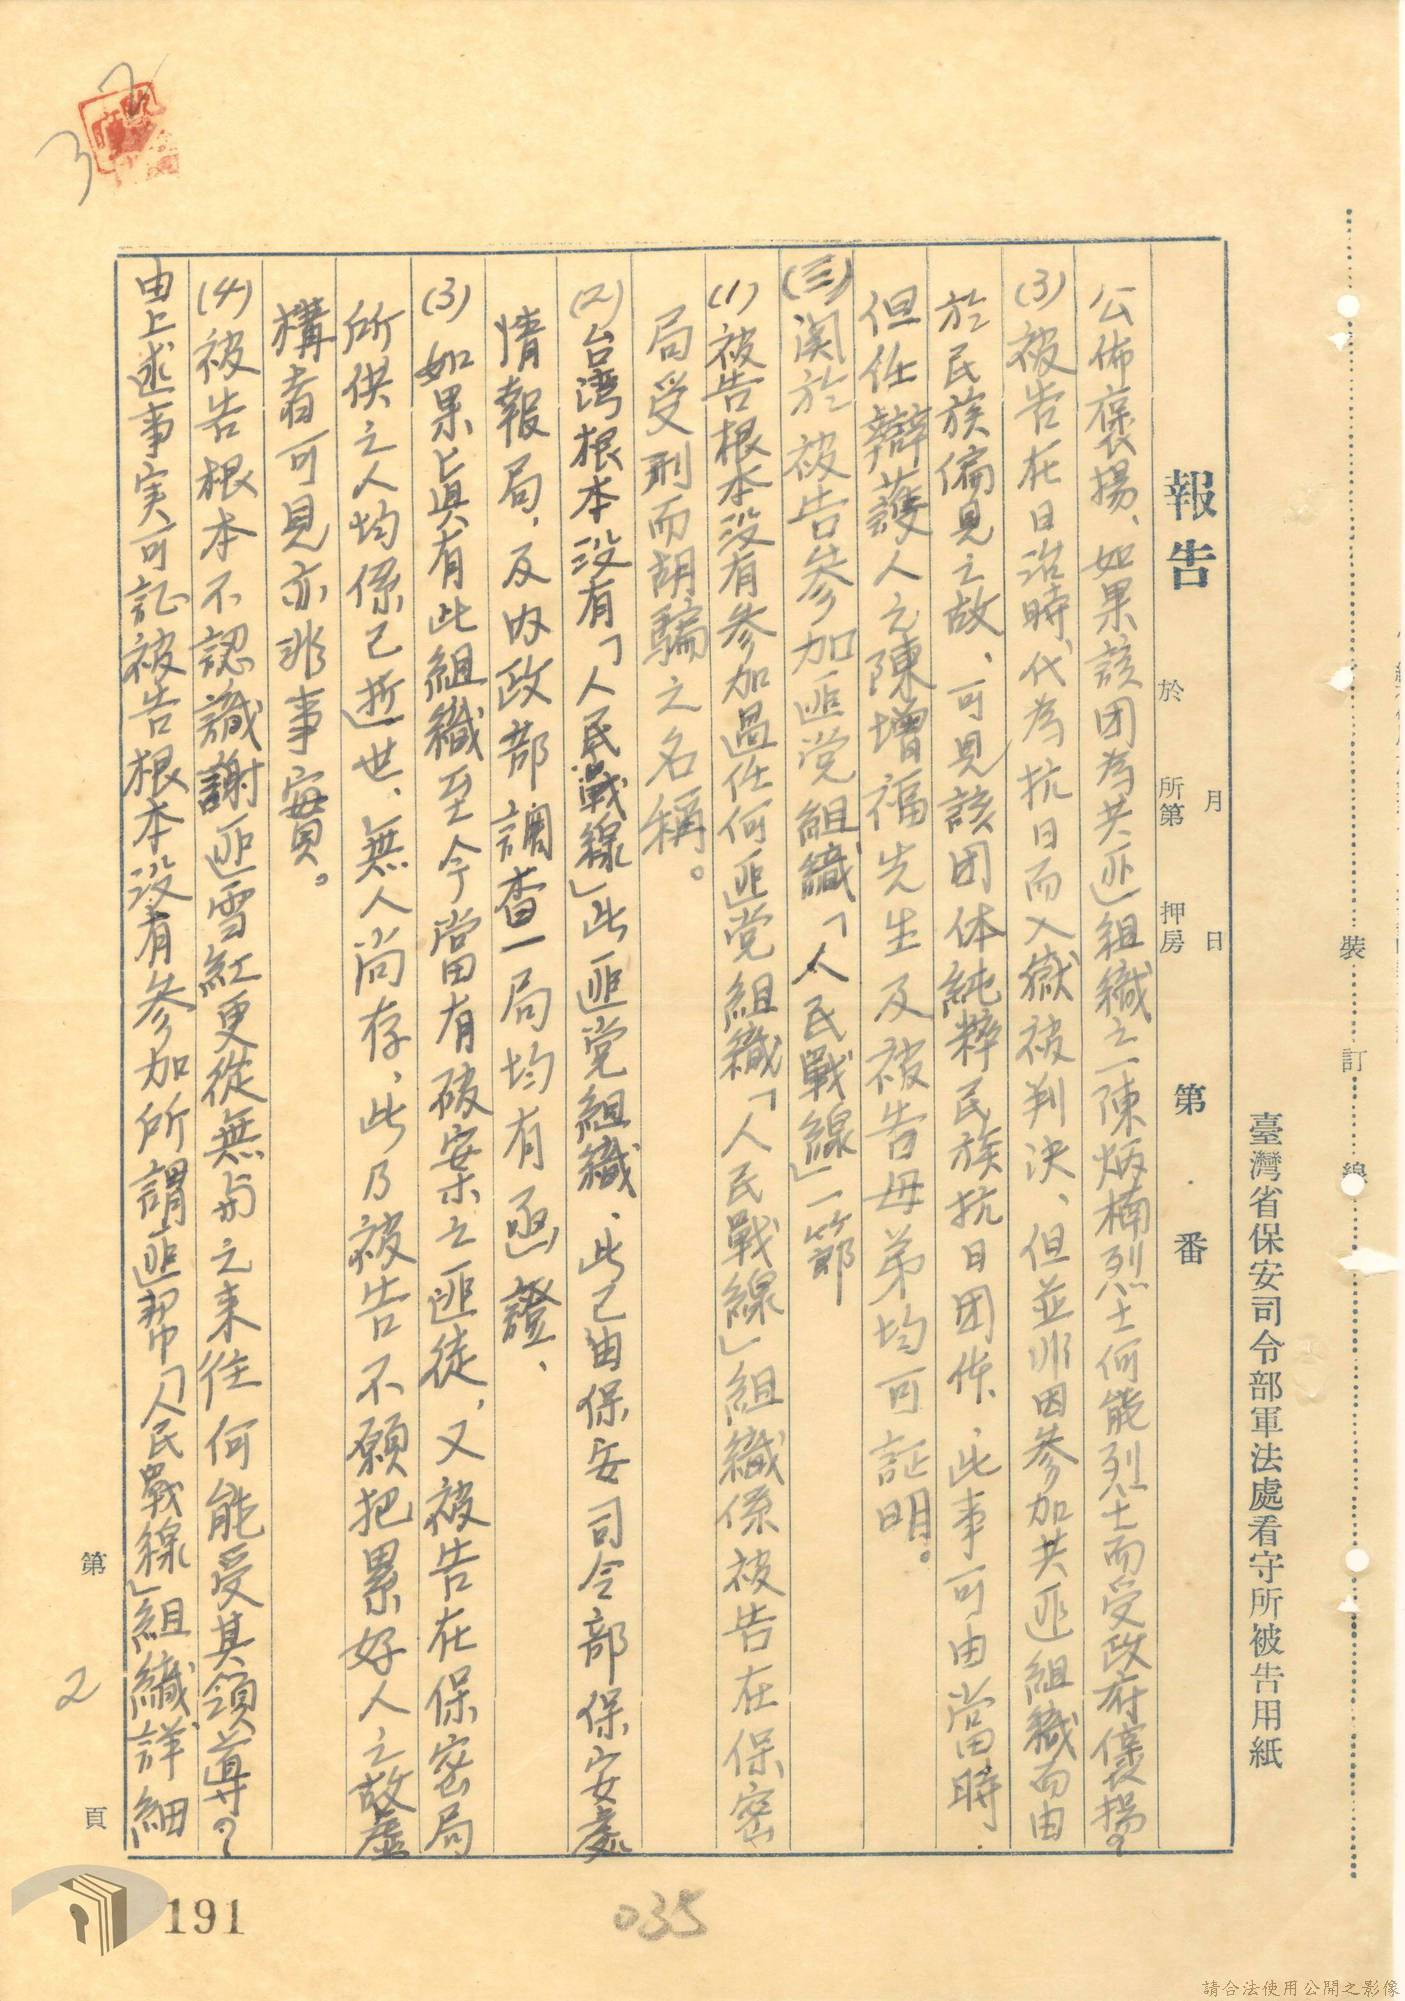 臺灣省保安司令部軍法處看守所被告用紙
報告
第 番
月 日
於 所第 押房
公佈褒揚、如果該团為共匪組織之一陳炳楠烈士何能烈士而受政府褒揚?
(3)被告在日治時代為抗日而入獄被判決、但並非因參加共匪組織而由
於民族偏見之故、可見該团体純粹民族抗日团体、此事可由當時
但任辯護人之陳增福先生及被告母弟均可証明。
(三)関於被告參加匪党組織「人民戰線」一節
(1)被告根本没有參加過任何匪党組織「人民戰線」組織係被告在保密
局受刑而胡騙之名稱。
(2)台湾根本没有「人民戰線」此匪党組織、此已由保安司令部保安處
情報局、及内政部調查一局均有函證、
(3)如果眞有此組織至今當有破案之匪徒,又被告在保密局
所供之人均係已逝世、無人尚存、此乃被告不願把累好人之故虛
構者可見亦非事實。
(4)被告根本不認識謝匪雪紅更從無与之来往何能受其領導?
由上述事実可証被告根本没有參加所謂匪幫「人民戰線」組織詳細
第 2 頁
191
035
裝 訂 線
請合法使用公開之影像